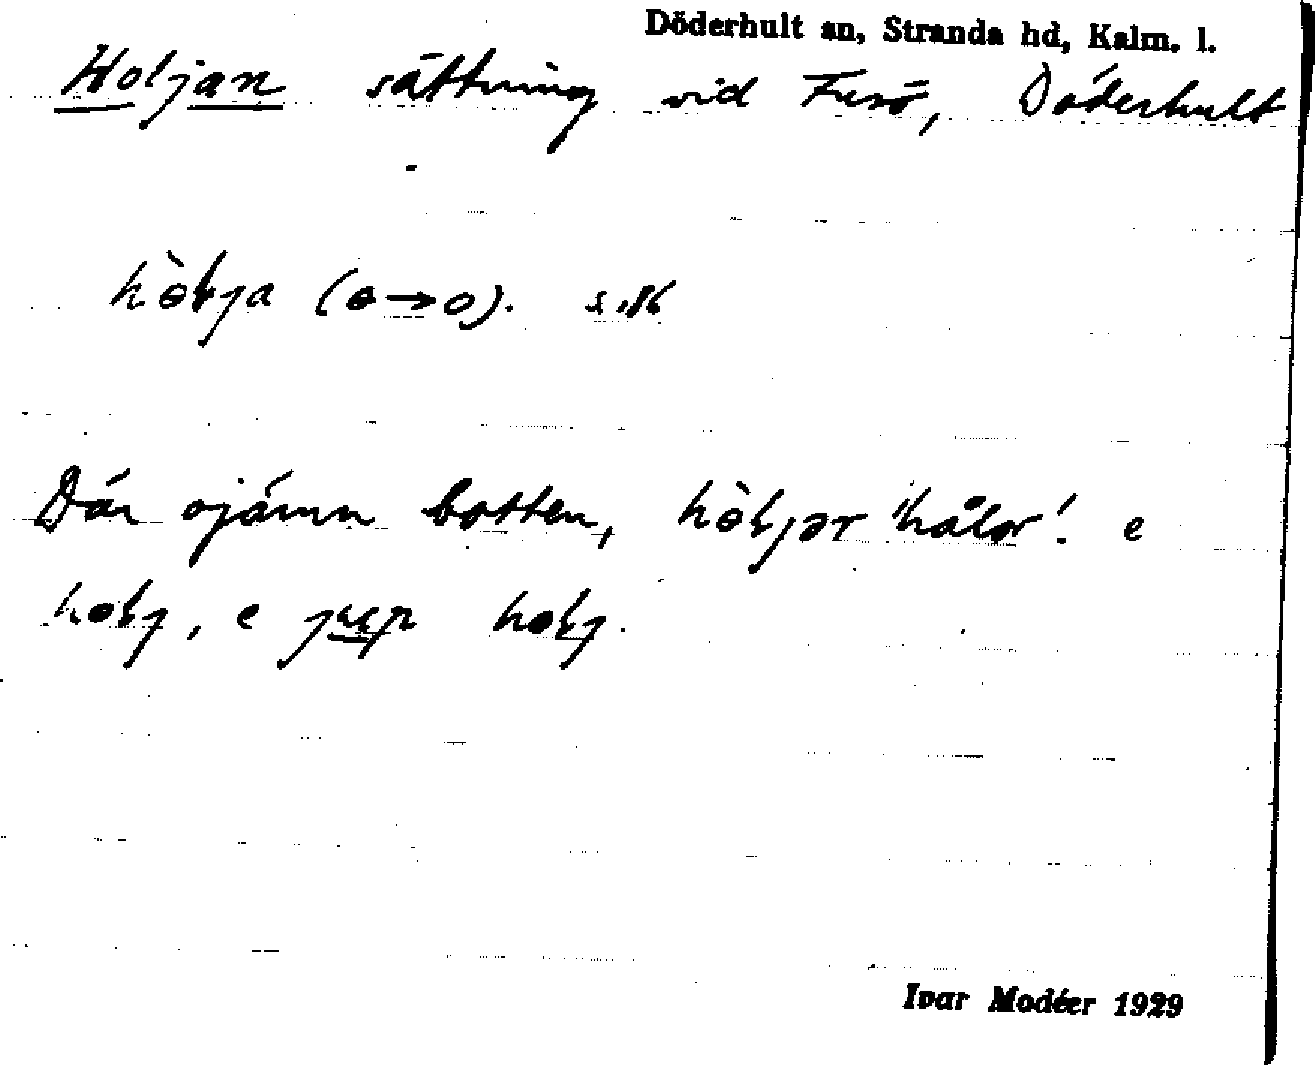 Döderhult sn, Stranda hd, Kalm. l.
Holjan sättning vid Furö, Döderhult
hò̵ł̵ja (ɵ→o). s. 186
Där ojämn botten, hɵ̀łjər 'hålor'. e
hɵłj, e jɯp hɵłj.
Ivar Modéer 1929